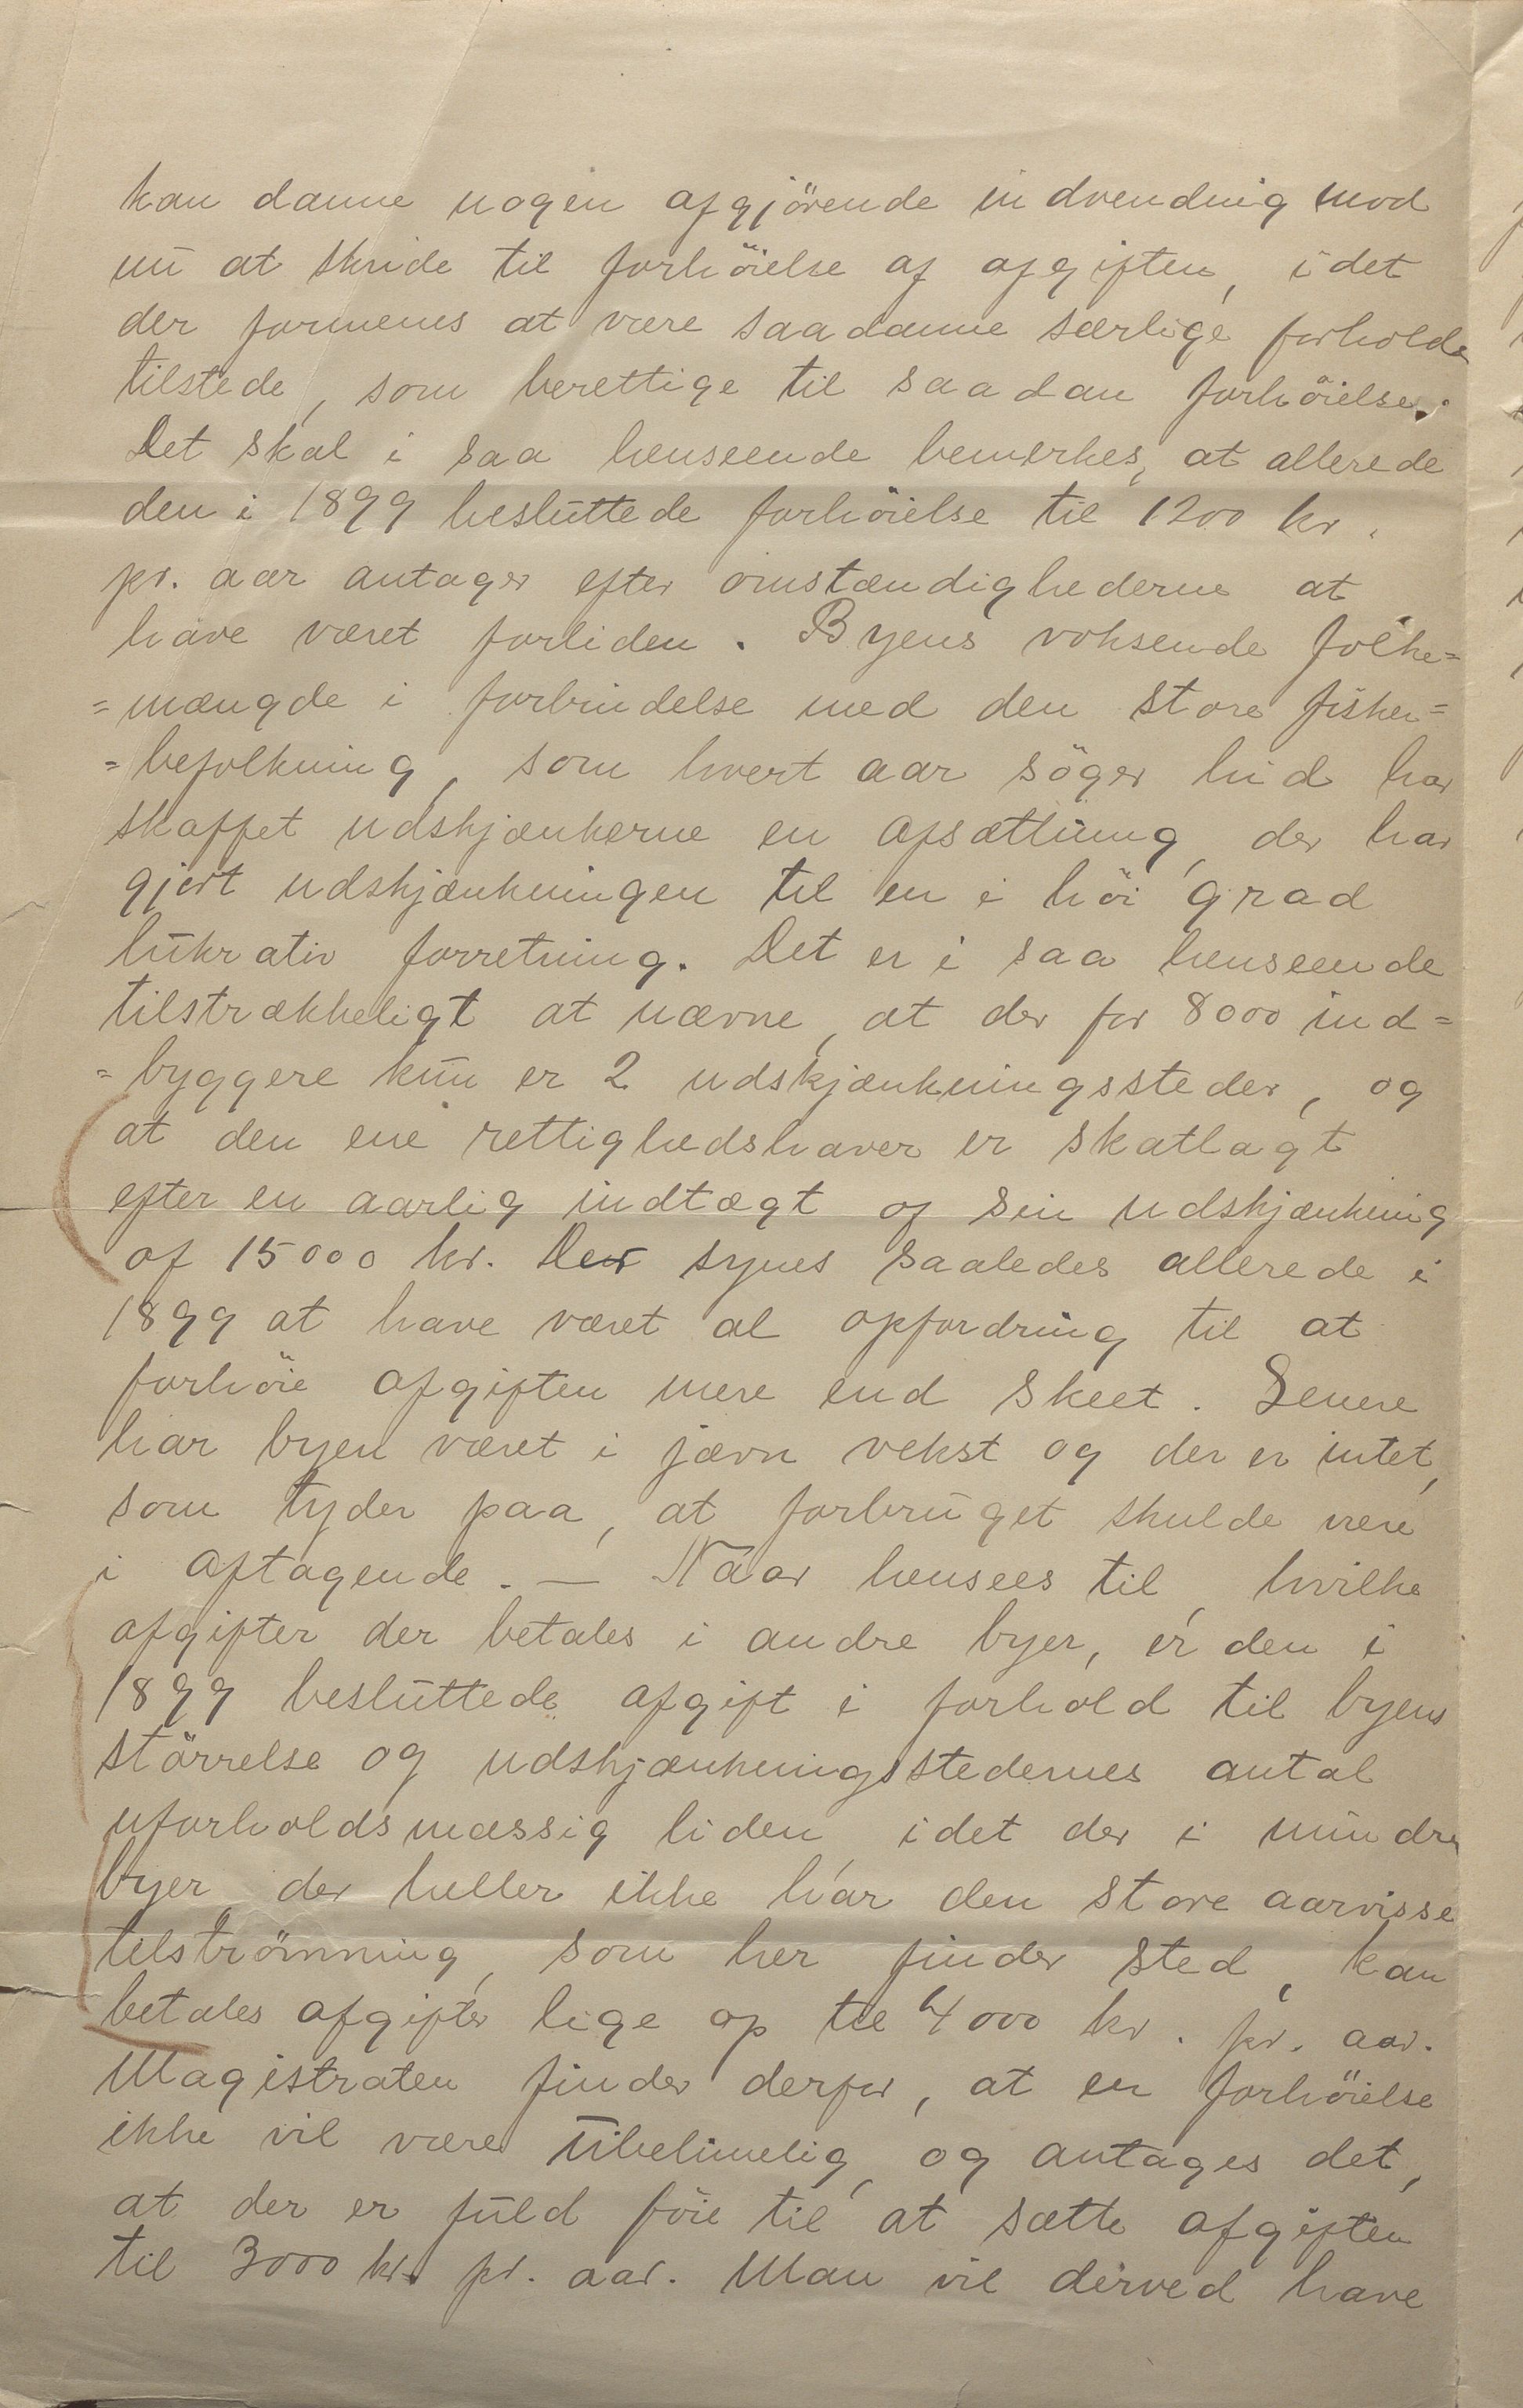 kan danne nogen afgjörende indvending mod
nu at skride til forhöielse af afgiften, idet
der formenes at være saadanne særlige forholde
tilstede, som berettige til saadan forhöielse.
Det skal i saa henseende bemerkes, at allerede
den i 1899 besluttede forhöielse til 1200 kr.
pr. aar antages efter omstændighederne at
have været forliden. Byens voksende folke=
=mængde i forbindelse med den store fisker=
=befolkning, som hvert aar söger hid har
skaffet udskjænkerne en afsættning, der har
gjort udskjænkningen til en i höi grad
lukrativ forretning. Det er i saa henseende
tilstrækkeligt at nævne, at der for 8000 ind=
=byggere kun er 2 udskjænkningssteder, og
at den ene rettighedshaver er skatlagt
efter en aarlig indtægt af sin udskjænkning
af 15000 kr. Der synes saaledes allerede i
1899 at have været al opfordring til at
forhöie afgiften mere end skeet. Senere
har byen været i jævn vekst og der er intet,
som tyder paa, at forbruget skulde være
i aftagende. — Naar hensees til, hvilke
afgifter der betales i andre byer, er den i
1899 besluttede afgift i forhold til byens
störrelse og udskjænkningsstedernes antal
uforholdsmæssig liden, idet der i mindre
byer, der heller ikke har den store aarvisse
tilströmning, som her finder sted, kan
betales afgifter lige op til 4000 kr. pr. aar.
Magistraten finder derfor, at en forhöielse
ikke vil være ubelimelig, og antages det,
at der er fuld föie til at sætte afgiften
til 3000 kr. pr. aar. Man vil derved have